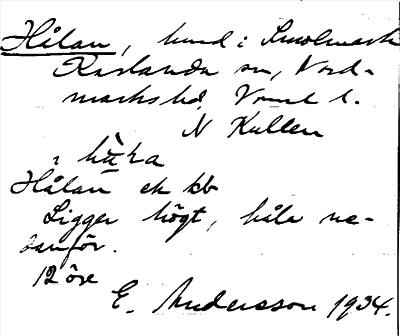 Hålan, hmd i Smolmark
Karlanda sn, Nord-
marks hd. Vrml l.
N Kullen
i hå̀ḷa
Hålan ek kb
Ligger högt, håla ne-
danför.
12 öre
E. Andersson 1934.